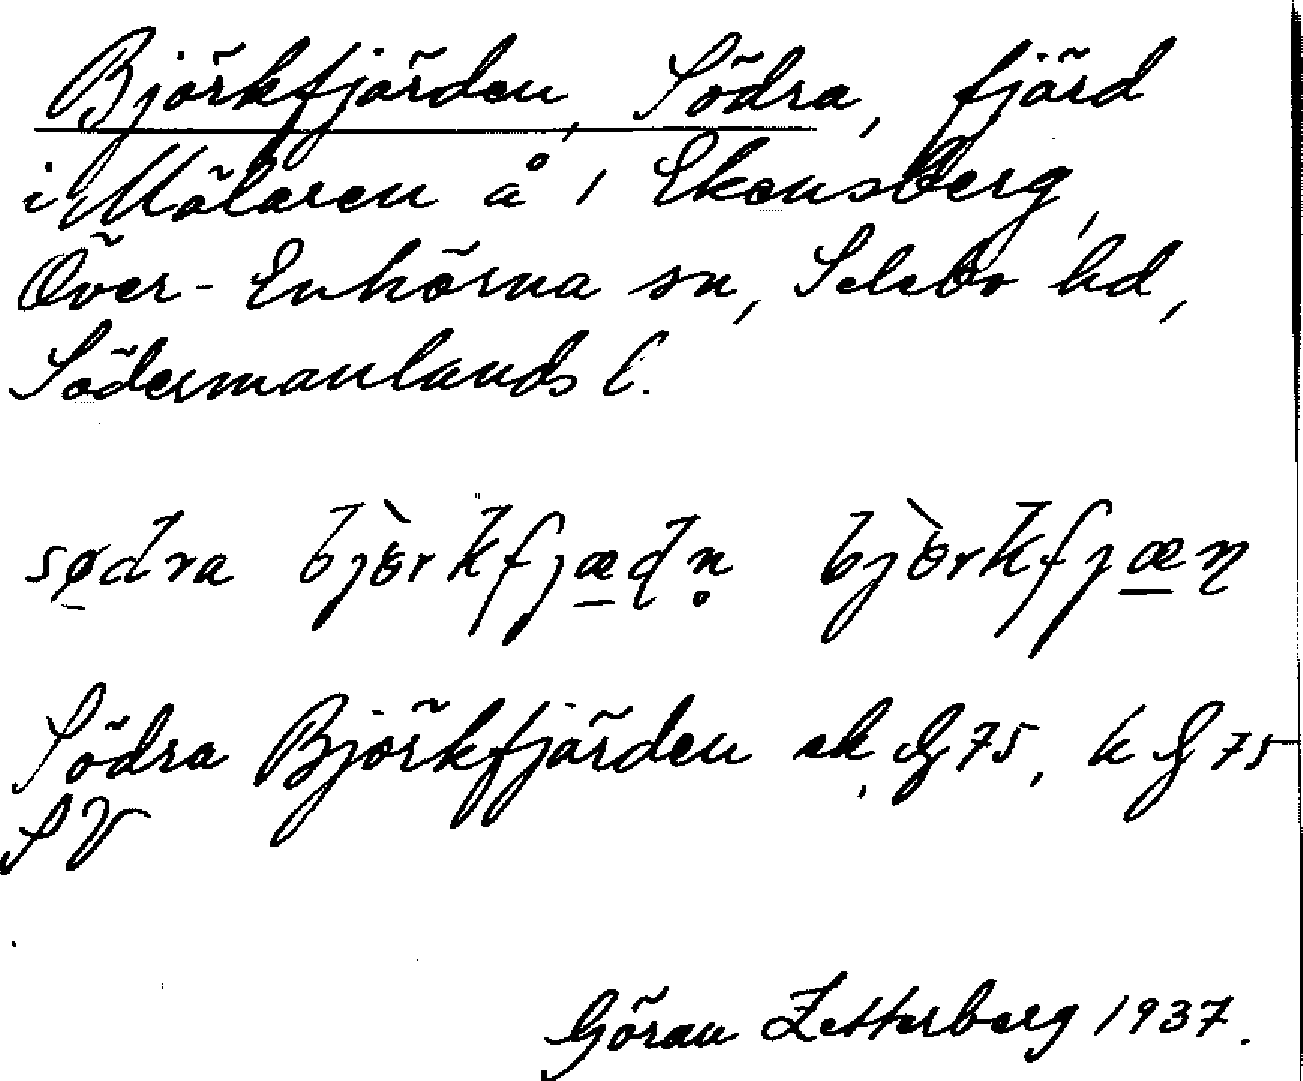 Björkfjärden, Södra, fjärd
i Mälaren å 1 Ekensberg,
Över-Enhörna sn, Selebo hd,
Södermanlands l.
södra Björkfjärden
Södra Björkfjärden ek. G 75, k G 75
SV
Göran Zetterberg 1937.